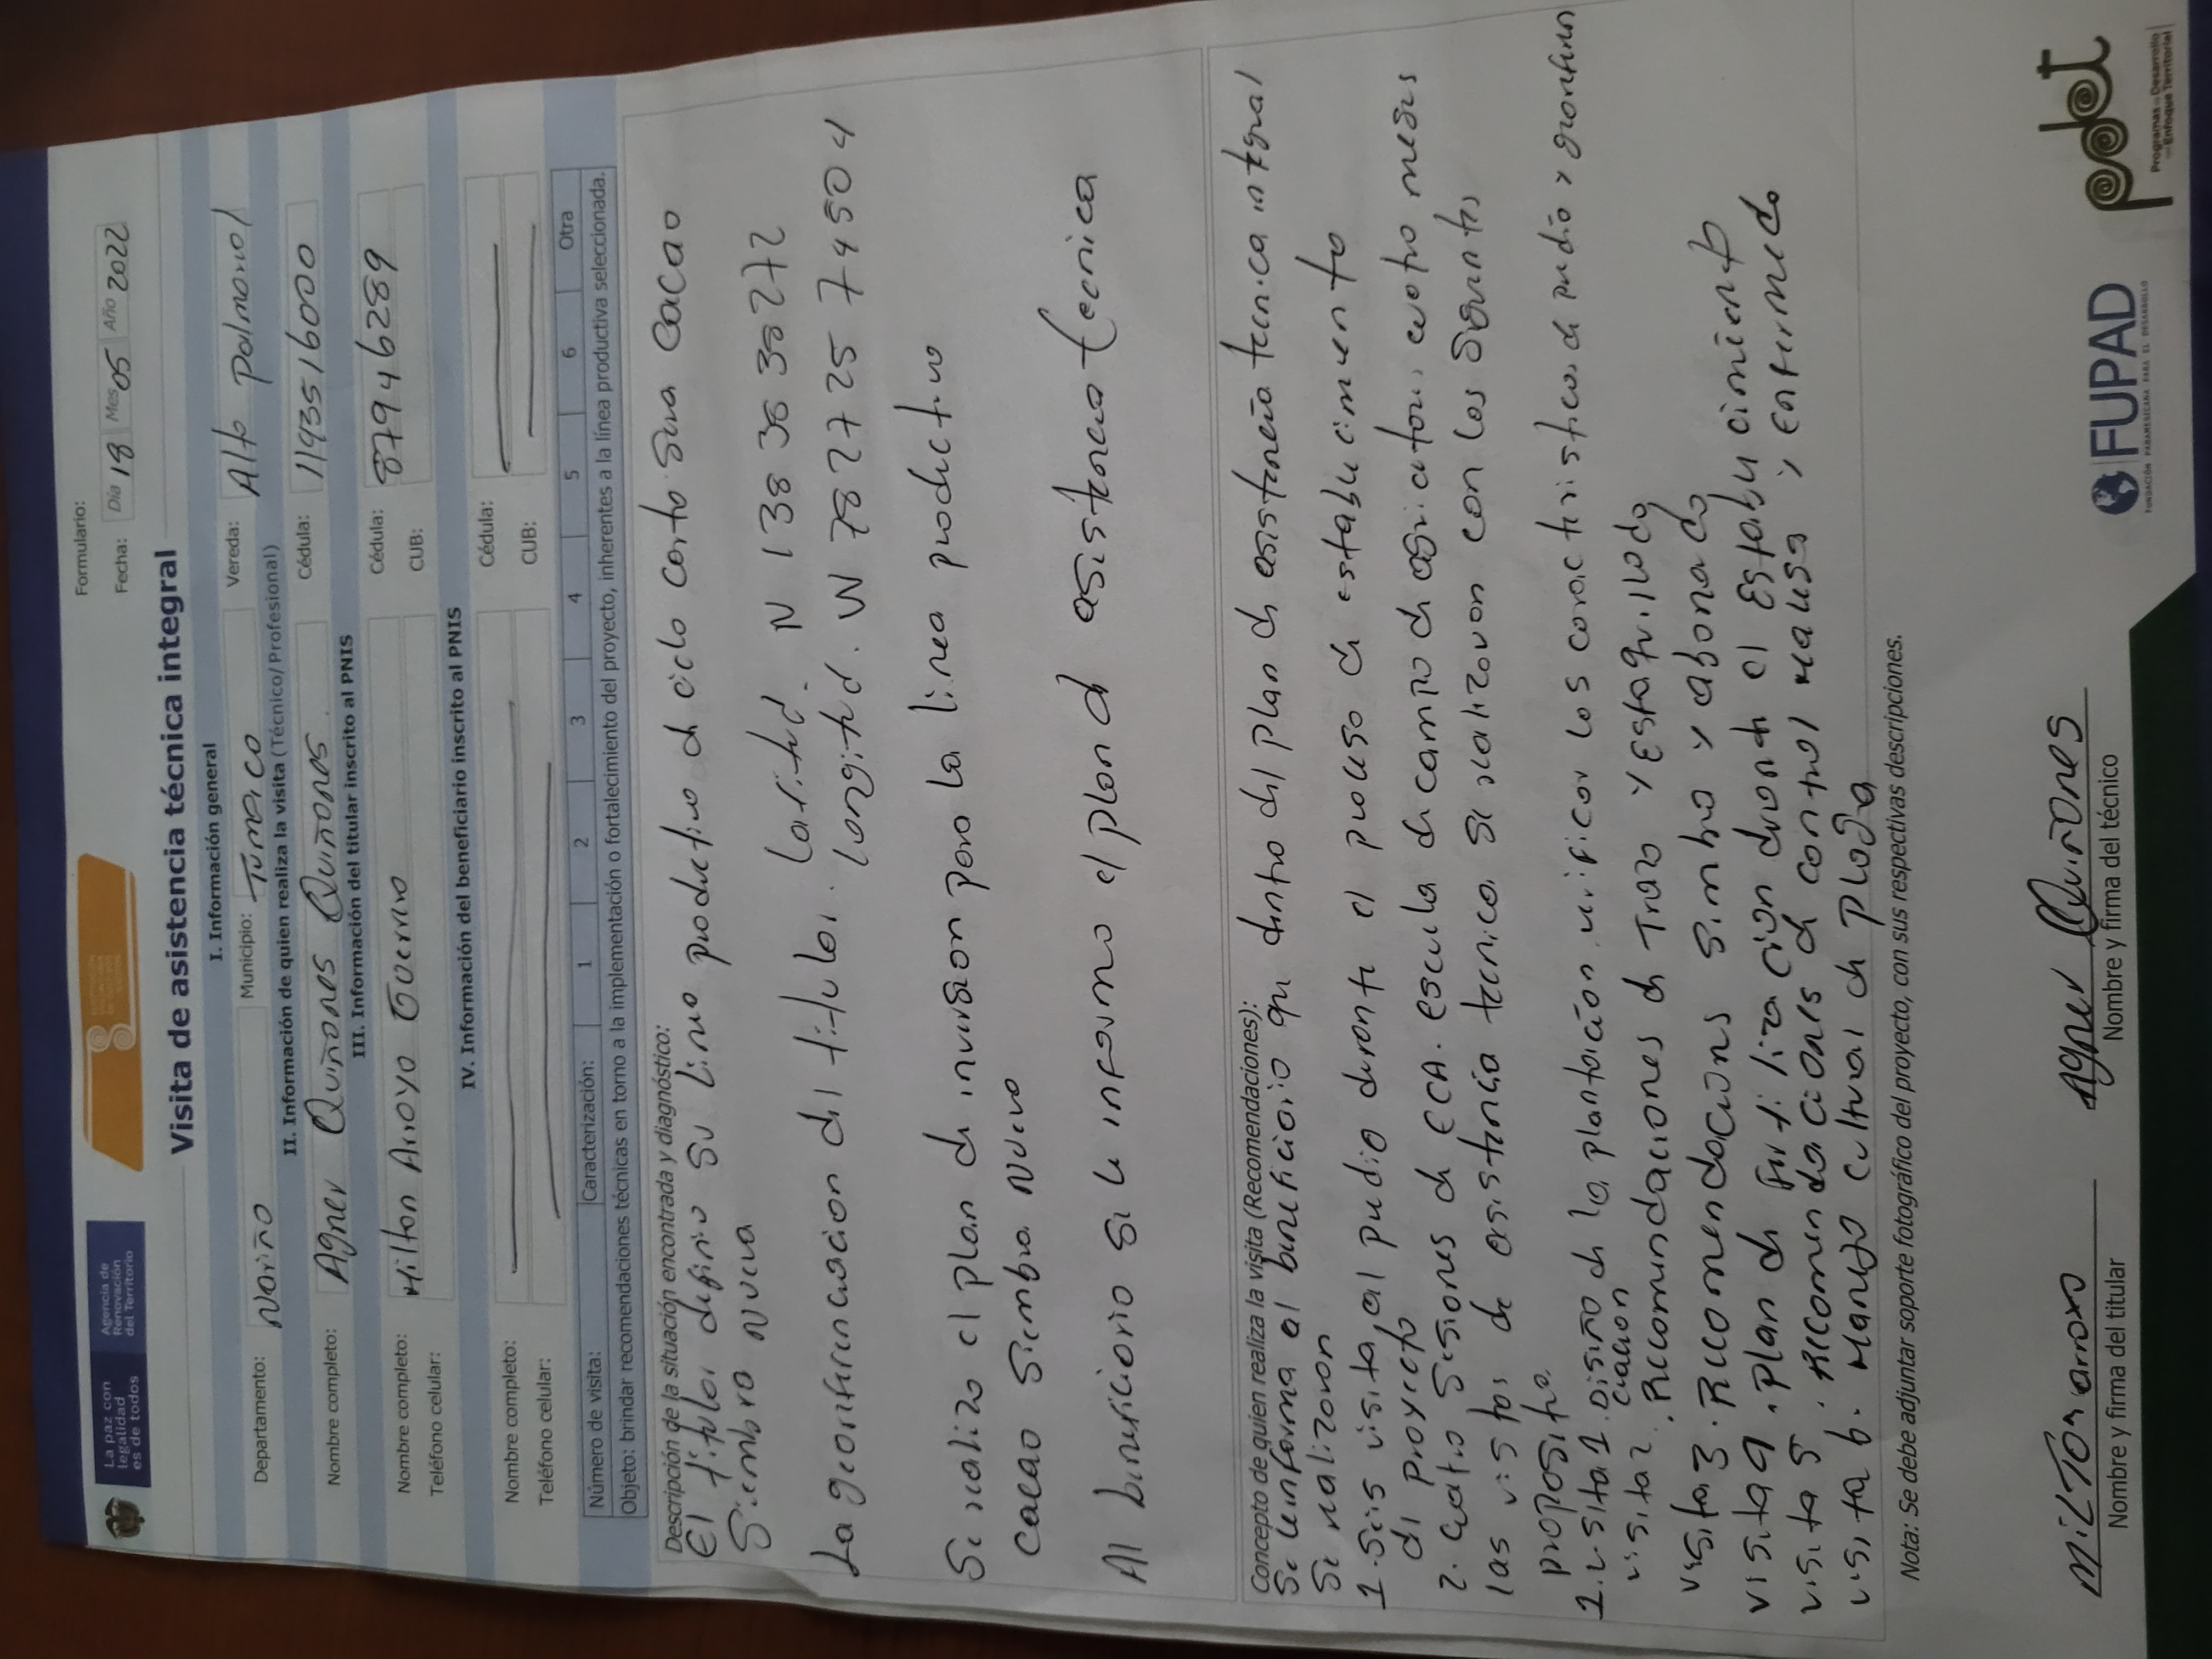 La paz con
legalidad
es de todos
Agencia de
Renovación
del Territorio
Formulario:
Fecha: Día 18 Mes 05 Año 2022
Visita de asistencia técnica integral
I. Información general
Departamento: Nariño Municipio: Tumaco Vereda: Alto Palmarol
II. Información de quien realiza la visita (Técnico/Profesional)
Nombre completo: Agner Quiñones Quiñones Cédula: 1193516000
III. Información del titular inscrito al PNIS
Nombre completo: Milton Arroyo Guerrero Cédula: 87946289
Teléfono celular: CUB:
IV. Información del beneficiario inscrito al PNIS
Nombre completo: Cédula:
Teléfono celular: CUB:
Número de visita: Caracterización: 1 2 3 4 5 6 Otra
Objeto: brindar recomendaciones técnicas en torno a la implementación o fortalecimiento del proyecto, inherentes a la línea productiva seleccionada.
Descripción de la situación encontrada y diagnóstico:
El titular definio su linea productiva de ciclo corto Sera Cacao
Siembra nueva
La georifirencacion del titular. Latitud. N 1 38 38 38 272
Longitud. W 78 27 25 7 4 50 4
Se realizo el plan de inversion para la linea productiva
cacao Siembra nueva
Al beneficiario se le informo el plan de asistencia tecnica
Concepto de quien realiza la visita (Recomendaciones):
Se le informa al beneficiario que dentro del plan de asistencia tecnica integral
Se realizaran
1. Seis visita al predio durante el proceso de establecimiento
de proyecto
2. cuatro Sesiones de ECA. escuela de campo de agricultores cuatro meses
las visitas de asistencia tecnica se realizaran con los siguientes
proposito.
1. visita 1. Diseño de la plantación verificar las caracteristicas de predio y
visita 2. Recomendaciones de Trazo y Estaquillado
visita 3. Recomendaciones siembra y abonado
visita 4. plan de fertilizacion durante el Establecimiento
visita 5. Recomendaciones de control maleza y enfermeda
visita 6. Manejo cultural de plaga
Nota: Se debe adjuntar soporte fotográfico del proyecto, con sus respectivas descripciones.
milTon arroyo
Nombre y firma del titular
Agner Quiñones
Nombre y firma del técnico
FUPAD
FUNDACIÓN PANAMERICANA PARA EL DESARROLLO
pdet
Programas de Desarrollo
con Enfoque Territorial